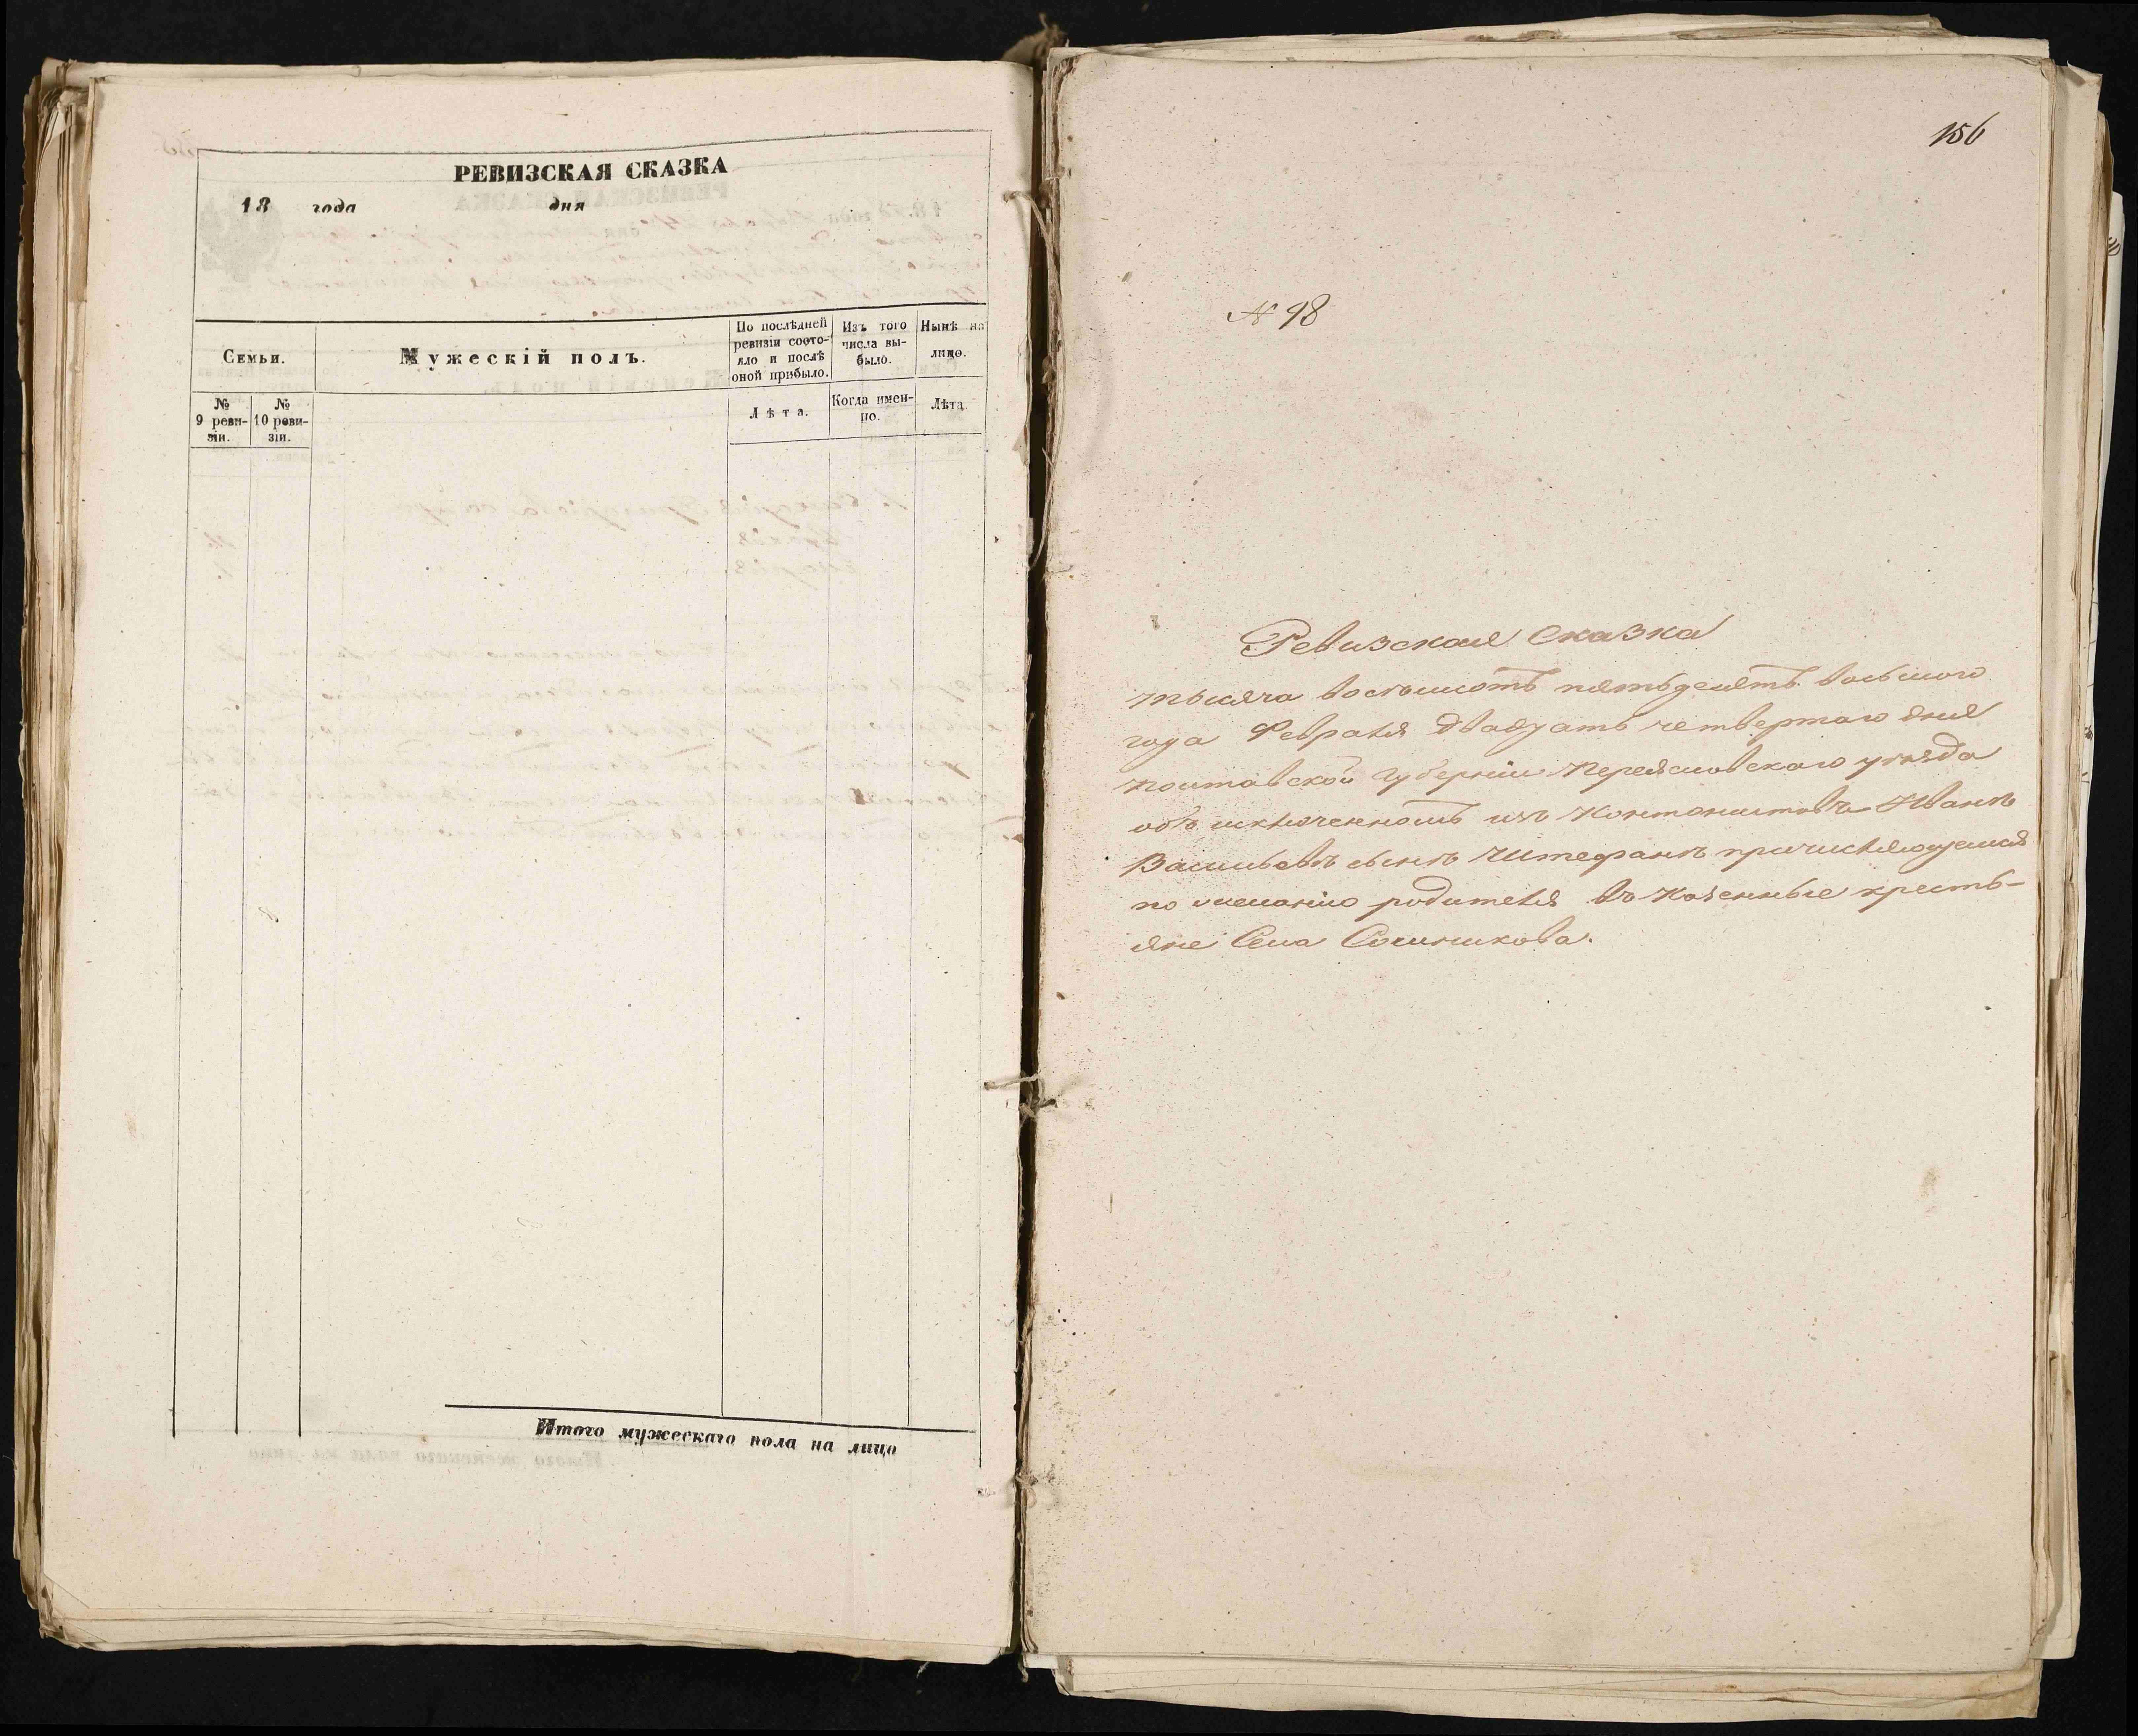 РЕВИЗСКАЯ СКАЗКА
18 года дня
Семьи.
Мужескій полъ.
По послѣдней
ревизіи состо-
яло и послѣ
оной прибыло.
Изъ того
числа вы-
было.
Нынѣ на
лицо.
№
9 реви-
зіи.
№
10 реви-
зіи.
Лѣта.
Когда имен-
но.
Лѣта
Итого мужескаго пола на лицо
156
№ 98
Ревизская Сказка
тысяча восемьсотъ пятьдесятъ восьмого
года Февраля двадцать четвертаго дня
Полтавской Губерніи Переяславскаго уѣзда
объ исключенномъ изъ Кантонистовъ Иванѣ
Васильевѣ сынѣ Штефанѣ причисляющемся
по желанію родителя въ Казенные кресть-
яне Села Сошникова.